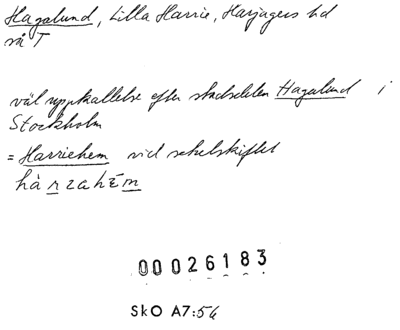 Hagalund, Lilla Harrie, Harjagers hd
så T
väl uppkallelse efter stadsdelen Hagalund i
Stockholm
= Harriehem vid sekelskiftet
hàrzahēm
00026183
SkO A7:54